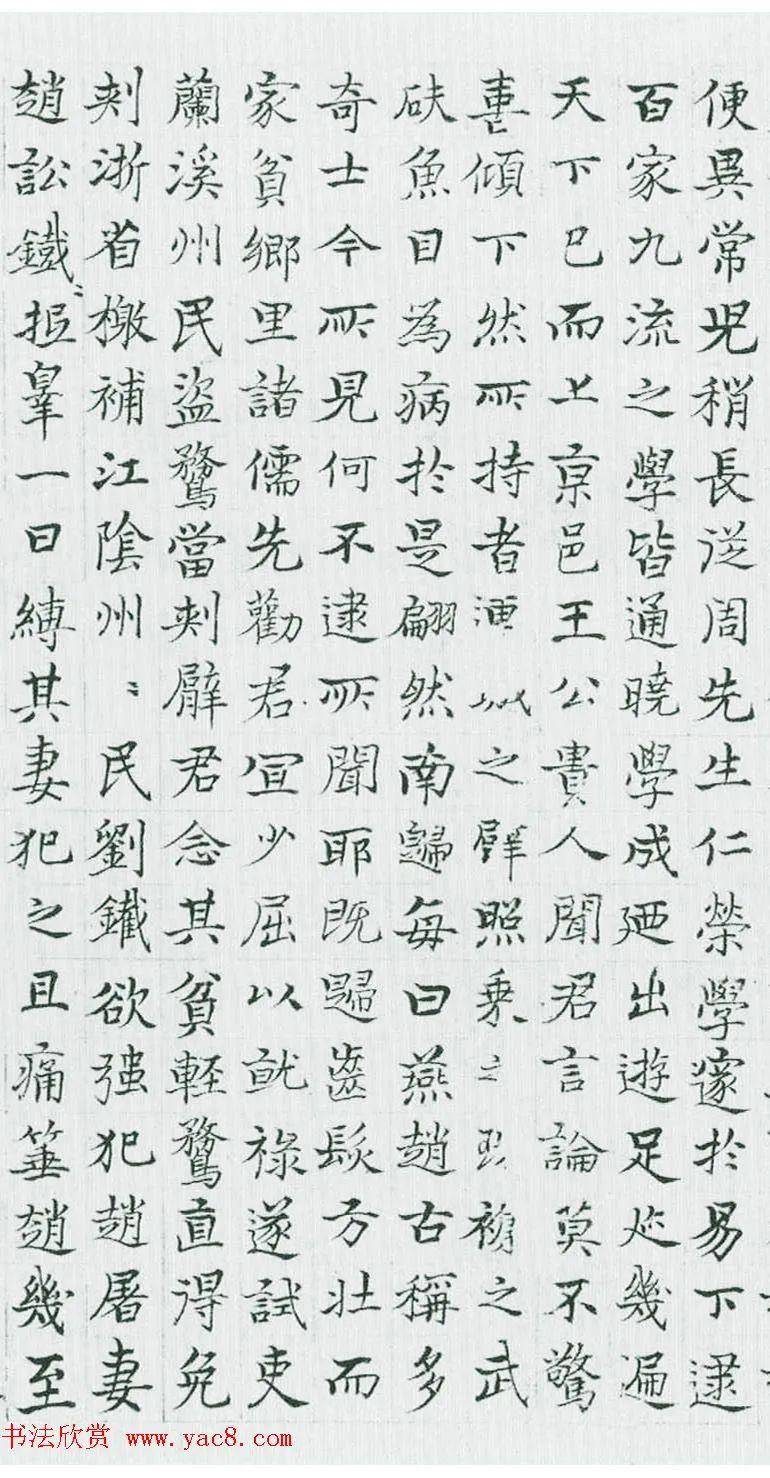 便異常児稍長從周先生仁榮學邃於易下逮
百家九流之學皆通曉學成廼出遊足迹幾遍
天下已而上京邑王公貴人聞君言論莫不驚
喜傾下然所持者之照乗之之武
砆魚目為病於是翩然南歸每曰燕趙古稱多
奇士今所見何不逮所聞耶既歸齒髮方壮而
家貧鄉里諸儒先勸君宜少屈以就祿遂試吏
蘭溪州民盜鶩當刺臂君念其貧輕鶩直得免
刺浙省檄補江陰州〻民劉鐵欲强犯趙屠妻
趙訟鐵〻挋辠一日縛其妻犯之且痛箠趙幾至
书法欣赏 www.yac8.com